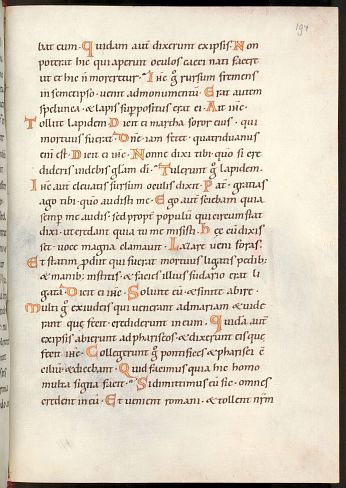 194
bat eum. Quidam aut dixerunt ex ipsis. Non
poterat hic qui aperuit oculos caeci nati facere
ut et hic ñ moreretur. Ihc g rursum fremens
in semetipso. venit ad monumentū. Erat autem
spelunca. & lapis suppositus erat ei. Ait ihc.
Tollite lapidem. Dicit ei martha soror eius. qui
mortuus fuerat. Dne. iam fetet. quatriduanus
enī est. Dicit ei ihc. Nonne dixi tibi. quō si cre
dideris. videbis glām di. Tulerunt g lapidem.
Ihc aut elevatis sursum oculis dixit. Pat. gratias
ago tibi. qūo audisti me. Ego aut sciebam quia
semp me audis. sed propt populū qui circumstat
dixi. ut credant quia tu me misisti. hęc cū dixis
set. voce magna clamavit. Lazare veni foras.
Et statim pdiit qui fuerat mortuus. ligatis pedib;
& manib; institis. & facies illius sudario erat li
gata. Dicit eis ihc. Solvite eū. & sinite abire.
Multi g ex iudeis qui venerant ad mariam. & vide
rant quę fecit. crediderunt in eum. Quidā aut
ex ipsis abierunt ad phariseos. & dixerunt eis quę
fecit ihc. Collegerunt g pontifices & pharisei c̄
ciliū. & dicebant. Quid facimus quia hic homo
multa signa facit. Si dimittimus eū sic. omnes
credent in eū. Et venient romani. & tollent nrm